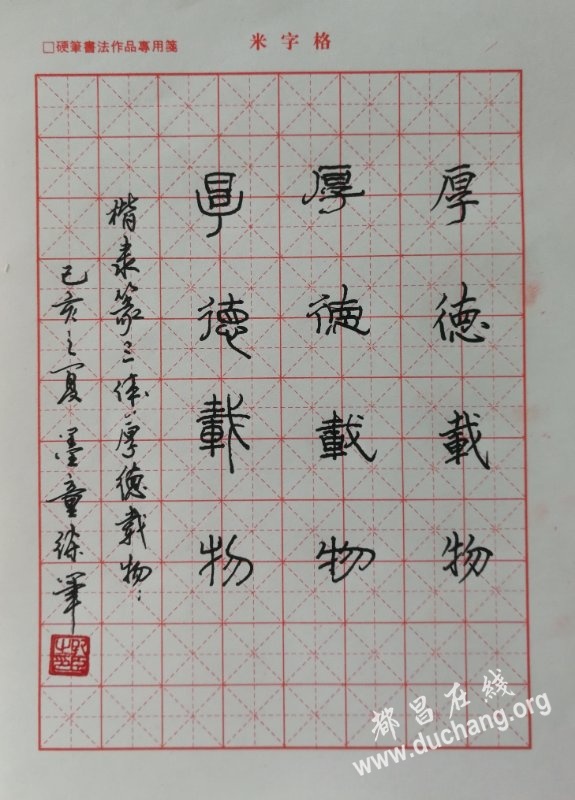 米字格
□硬筆書法作品專用箋
厚德載物
厚德載物
厚德載物
楷隶篆三体：厚德载物：
己亥之夏 墨童练笔
都昌在线
www.duchang.org